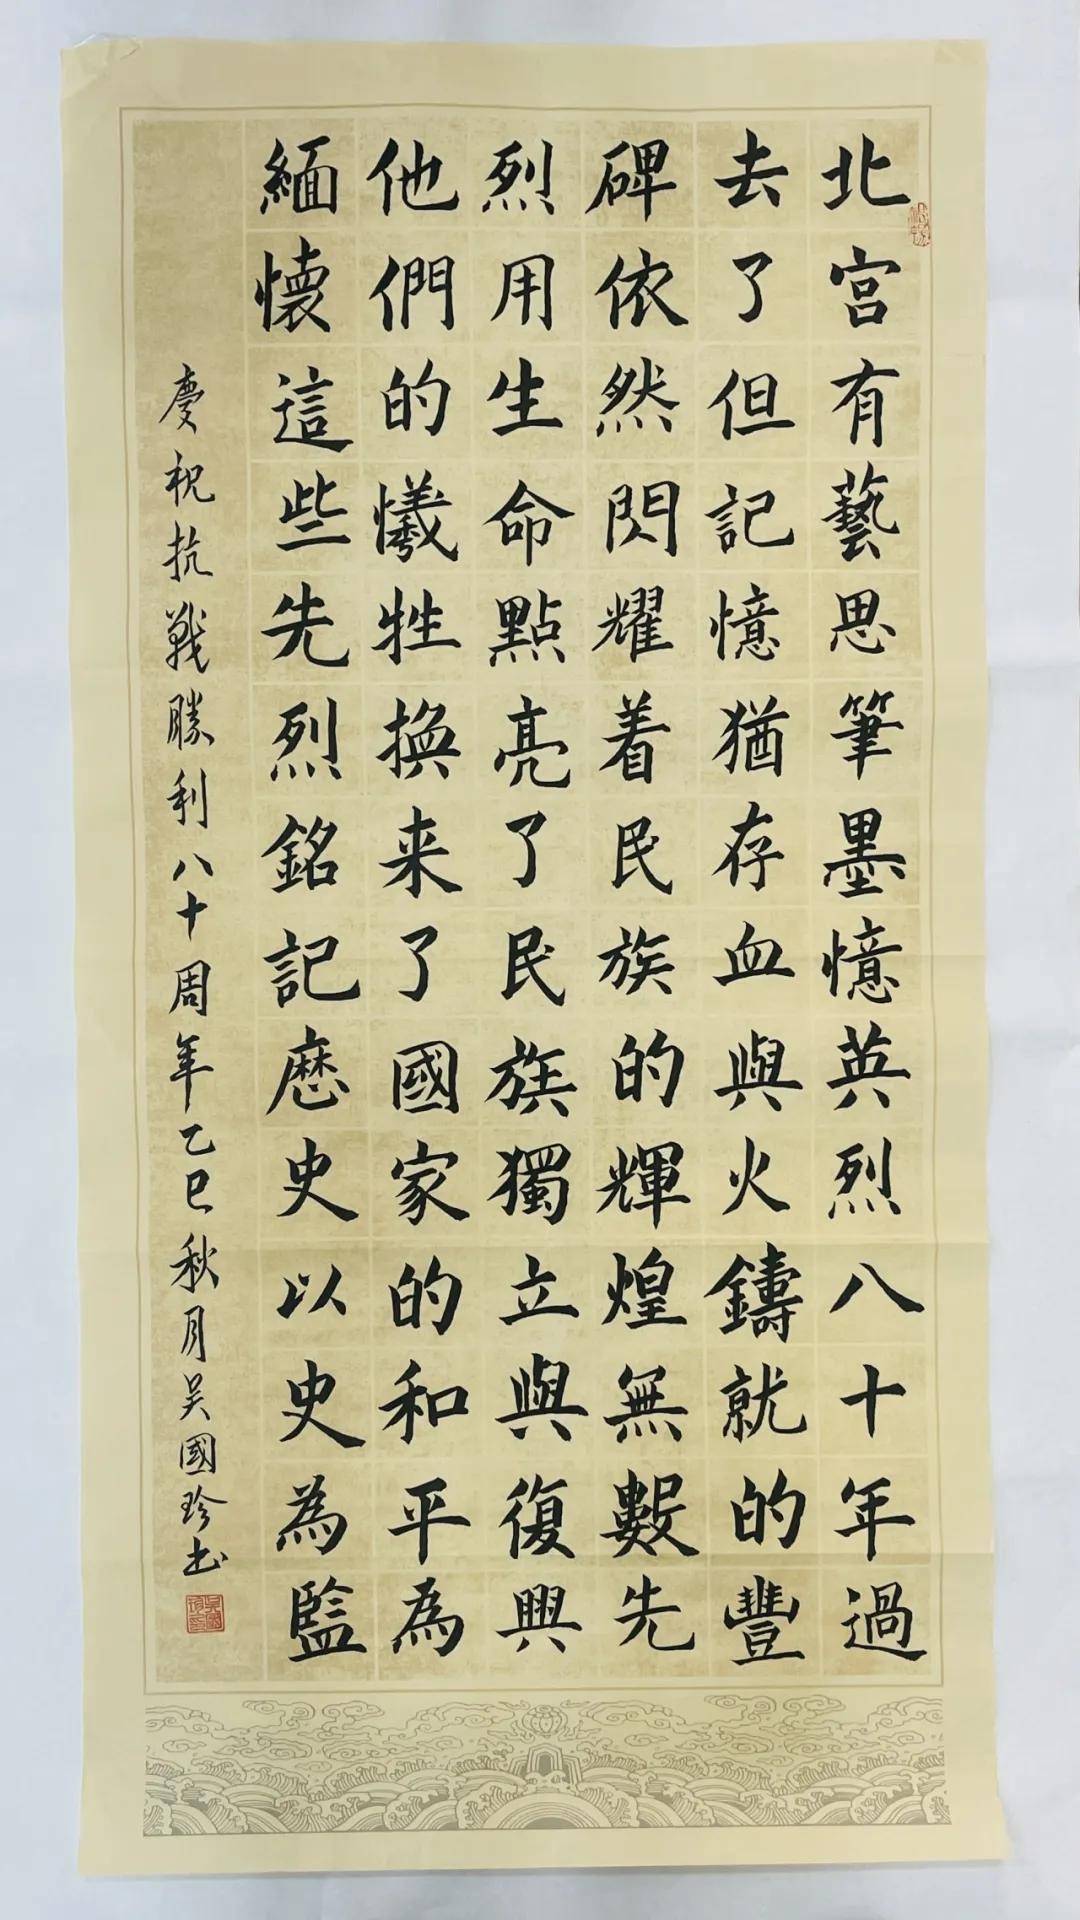 北宮有藝思筆墨憶英烈八十年過
去了但記憶猶存血與火鑄就的豐
碑依然閃耀着民族的輝煌無數先
烈用生命點亮了民族獨立與復興
他們的犧牲換来了國家的和平為
緬懷這些先烈銘記歷史以史為監
慶祝抗戰勝利八十周年乙巳秋月吳國珍书